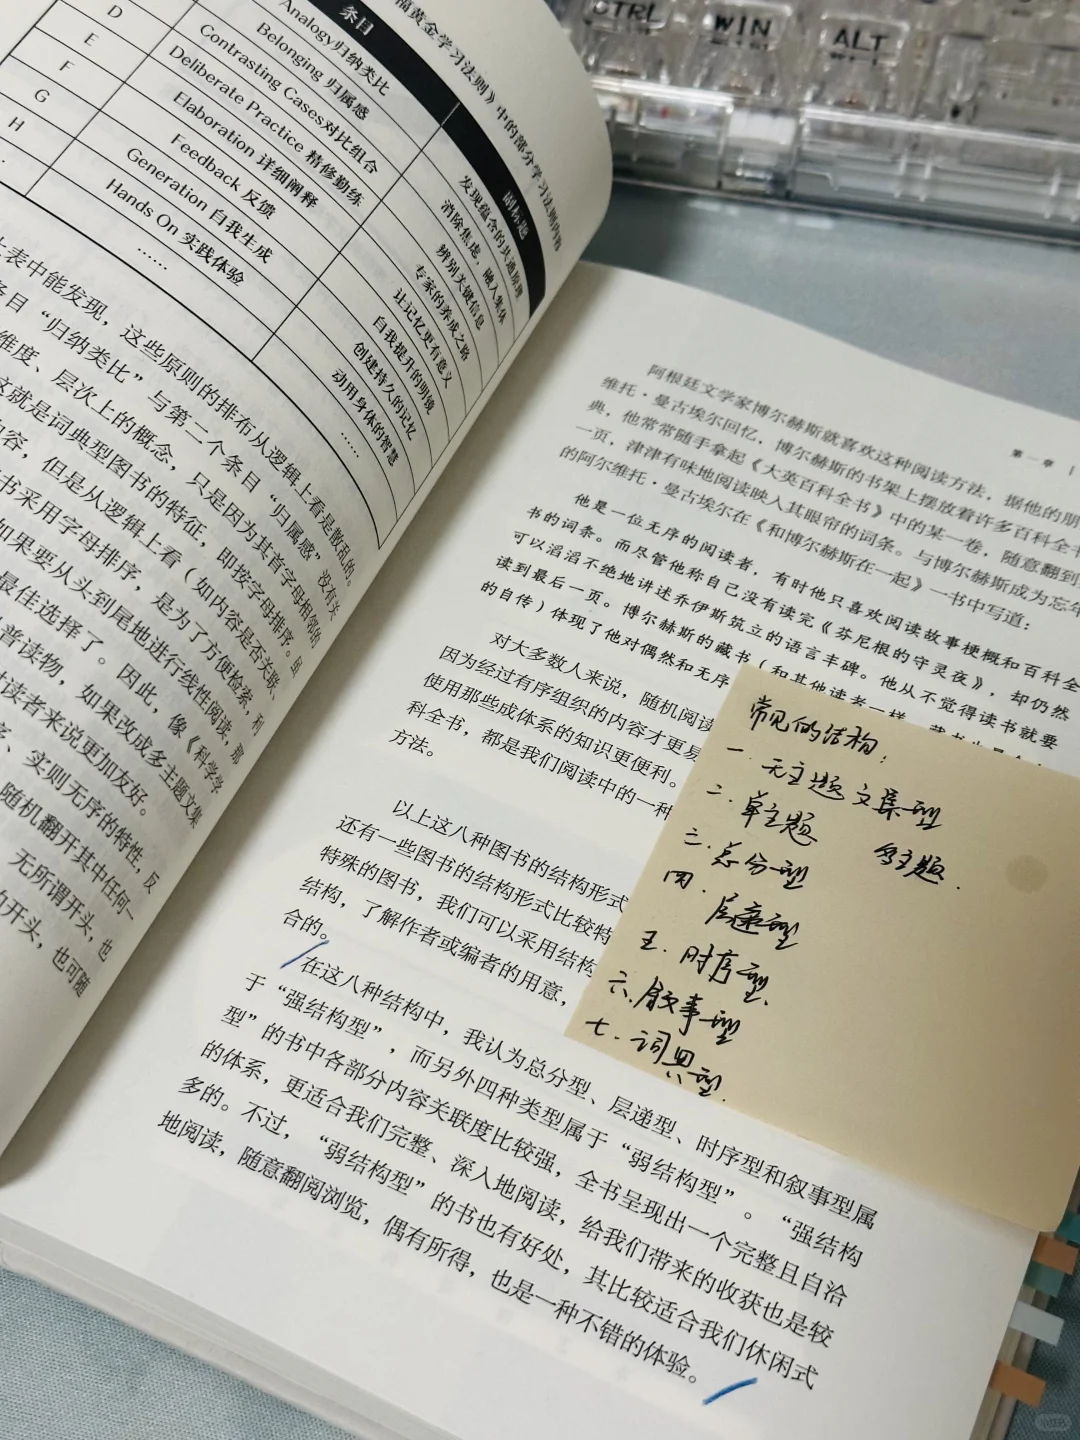 CTRL
WIN
ALT
福黄金学习法则》中的部分学习法则内容
条目
副标题
Analogy归纳类比
发现蕴含的共通原理
Belonging 归属感
消除焦虑，融入集体
Contrasting Cases对比组合
辨别关键信息
D
Deliberate Practice 精修勤练
专家的养成之路
E
Elaboration 详细阐释
让记忆更有意义
F
Feedback 反馈
自我提升的明镜
G
Generation 自我生成
创建持久的记忆
H
Hands On 实践体验
动用身体的智慧
……
……
表中能发现，这些原则的排布从逻辑上看是散乱的。
条目“归纳类比”与第二个条目“归属感”没有关
维度、层次上的概念，只是因为其首字母相邻的
这就是词典型图书的特征，即按字母排序。虽
内容，但是从逻辑上看（如内容是否关联、
书采用字母排序，是为了方便检索，利
如果要从头到尾地进行线性阅读，那
最佳选择了。因此，像《科学学
普读物，如果改成多主题文集
对读者来说更加友好。
、实则无序的特性，反
随机翻开其中任何一
，无所谓开头，也
的开头，也可随
第一章
阿根廷文学家博尔赫斯就喜欢这种阅读方法，据他的朋
维托·曼古埃尔回忆，博尔赫斯的书架上摆放着许多百科全书
典，他常常随手拿起《大英百科全书》中的某一卷，随意翻到
一页，津津有味地阅读映入其眼帘的词条。与博尔赫斯成为忘年
的阿尔维托·曼古埃尔在《和博尔赫斯在一起》一书中写道：
他是一位无序的阅读者，有时他只喜欢阅读故事梗概和百科全
书的词条。而尽管他称自己没有读完《芬尼根的守灵夜》，却仍然
可以滔滔不绝地讲述乔伊斯筑立的语言丰碑。他从不觉得读书就要
读到最后一页。博尔赫斯的藏书（和其他读者一样，藏书也是
的自传）体现了他对偶然和无序
对大多数人来说，随机阅读
因为经过有序组织的内容才更易
使用那些成体系的知识更便利。
科全书，都是我们阅读中的一种
方法。
以上这八种图书的结构形式
还有一些图书的结构形式比较特
特殊的图书，我们可以采用结构
结构，了解作者或编者的用意，
合的。
在这八种结构中，我认为总分型、层递型、时序型和叙事型属
于“强结构型”，而另外四种类型属于“弱结构型”。“强结构
型”的书中各部分内容关联度比较强，全书呈现出一个完整且自洽
的体系，更适合我们完整、深入地阅读，给我们带来的收获也是较
多的。不过，“弱结构型”的书也有好处，其比较适合我们休闲式
地阅读，随意翻阅浏览，偶有所得，也是一种不错的体验。
常见的结构：
一、无主题文集型
二、单主题 多主题.
三、总分型
四、层递型
五、时序型.
六、叙事型
七、词典型.